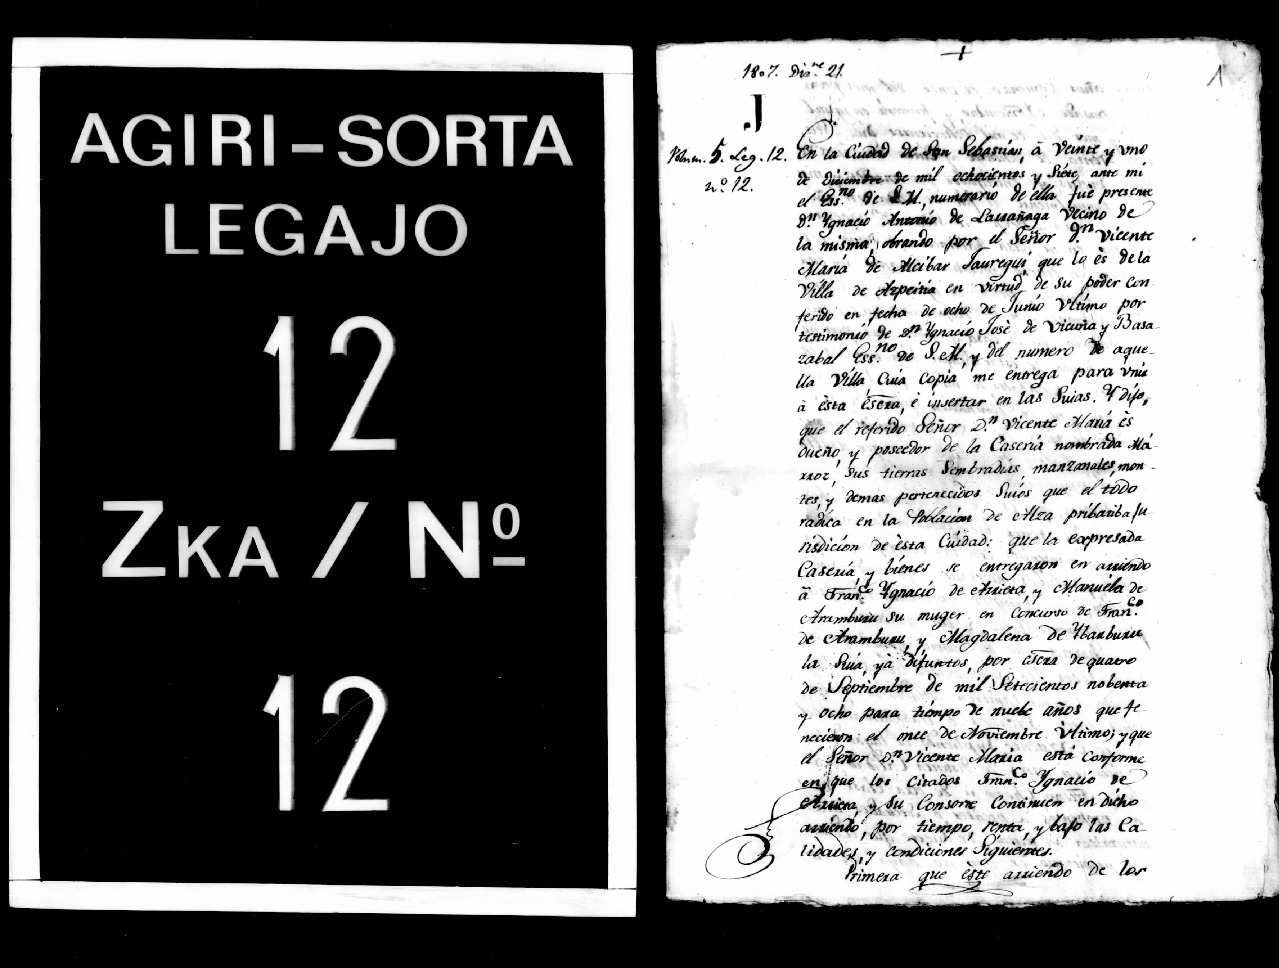 AGIRI-SORTA
LEGAJO
12
ZKA / Nº
12
+
1807. Dizre. 21.
1
J.
Num. 5. Leg. 12.
nº. 12.
En la Ciudad de San Sebastian, à veinte y uno
de Diciembre de mil ochocientos y Siete, ante mi
el Essno. de S. M., numerario de ella fuè presente
Dn. Ygnacio Antonio de Lassañaga vecino de
la misma, obrando por el Señor Dn. Vicente
Maria de Alcibar Jauregui, que lo ès de la
Villa de Azpeitia en virtud de su poder con-
ferido en fecha de ocho de Junio ultimo por
testimonio de Dn. Ygnacio Josè de Vicuña y Basa-
zabal Essno. de S. M., y del numero de aque-
lla Villa, Cuia Copia, me entrega para unir
à èsta esCra, è insertar en las Suias. Y dijo,
que el referido Señor Dn. Vicente Maria ès
dueño y poseedor de la Caseria nombrada Ma-
rroz, sus tierras Sembradias, manzanales, mon-
tes, y demas pertenecidos Suios que el todo
radica en la Poblacion de Alza pribatiba Ju-
risdicion de èsta Ciudad: que la expresada
Caseria, y bienes se entregaron en arriendo
à Franco. Ygnacio de Arrieta, y Manuela de
Aramburu su muger en concurso de Franco.
de Aramburu, y Magdalena de Ybarburu
la Suia, yà difuntos, por esCra de quatro
de Septiembre de mil Setecientos nobenta
y ocho para tiempo de nuebe años que fe-
necieron el once de Noviembre ultimo; y que
el Señor Dn. Vicente Maria està conforme
en que los citados Franco. Ygnacio de
Arrieta, y su Consorte Continuen en dicho
arriendo, por tiempo, renta, y bajo las Ca-
lidades, y condiciones Siguientes.
Primera que èste arriendo de los